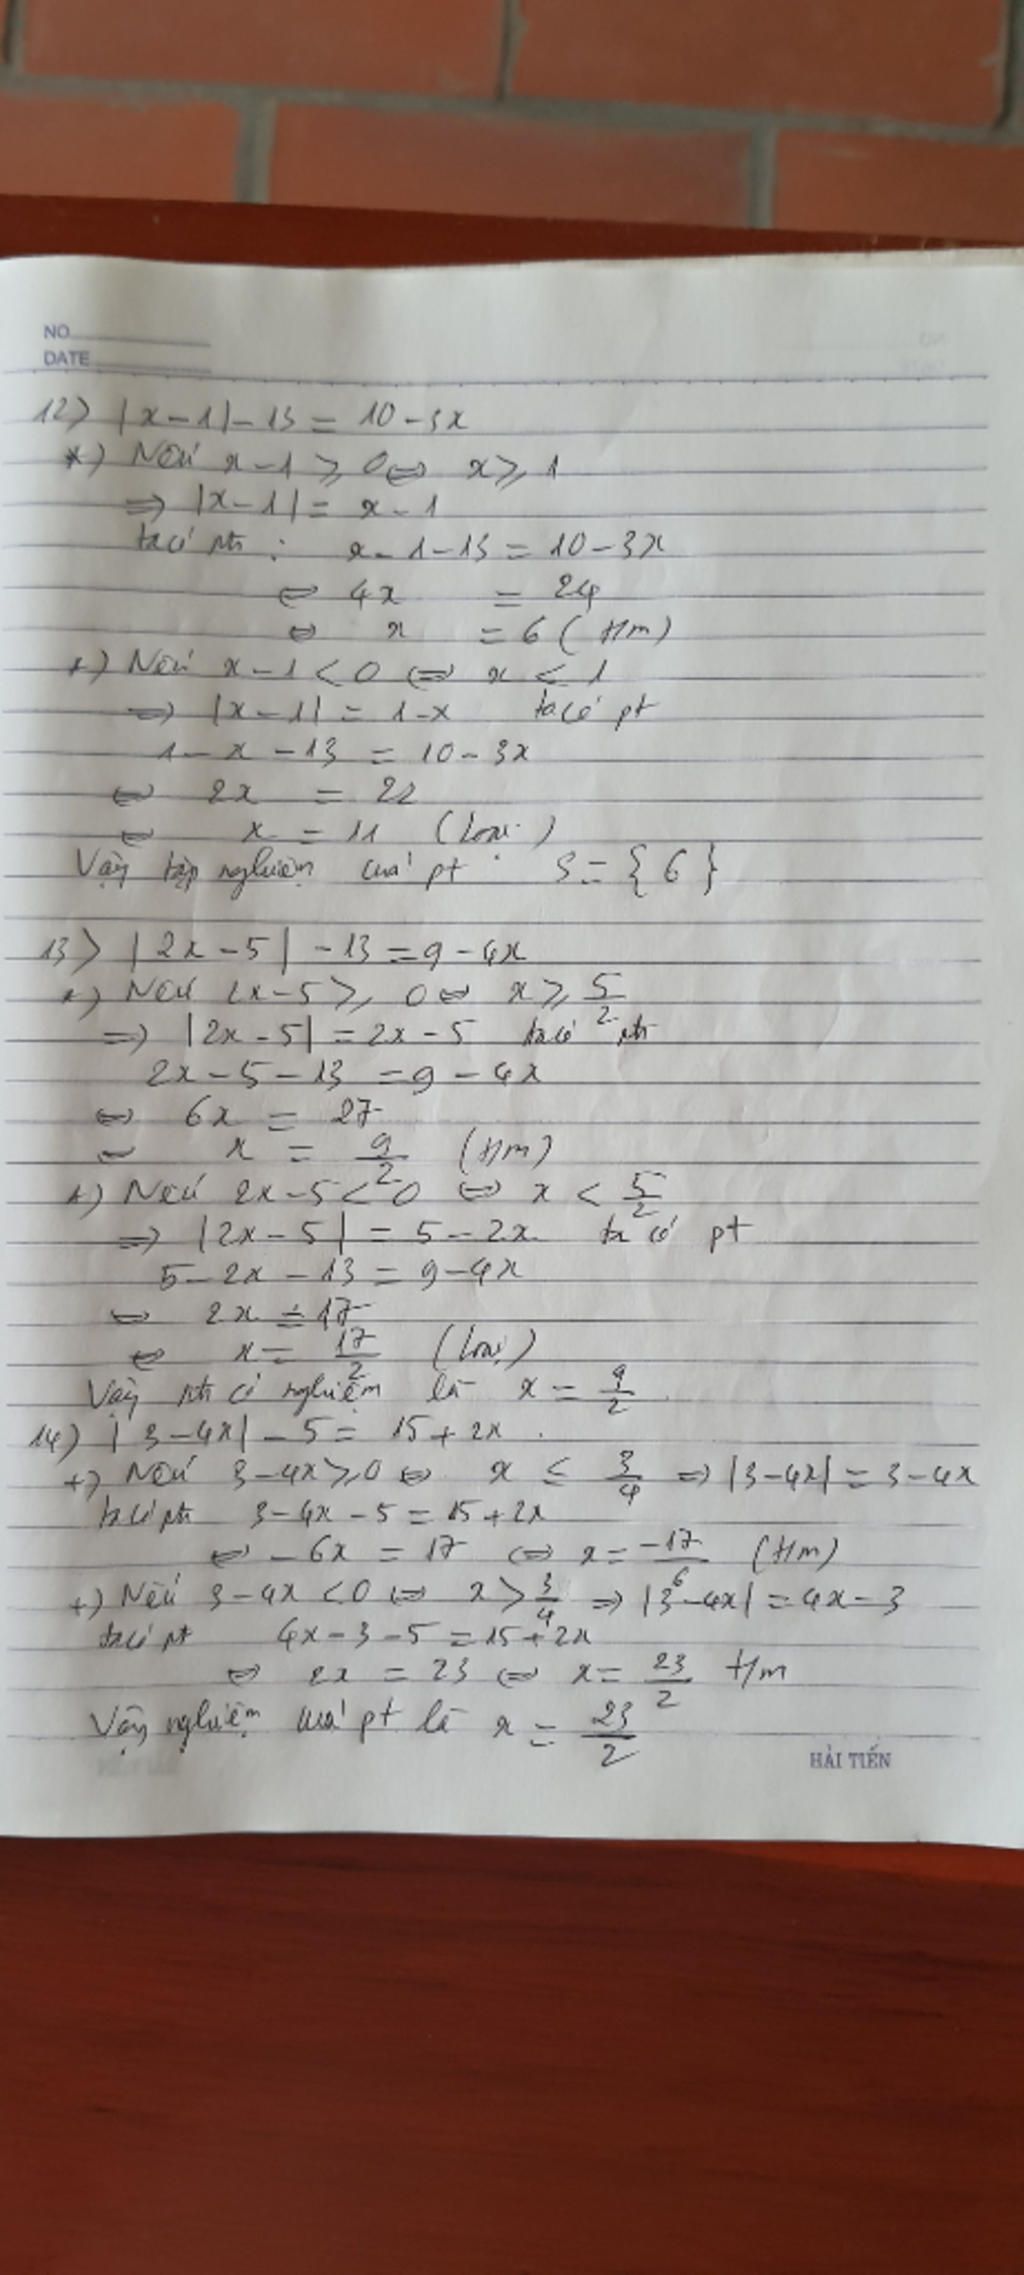 NO
DATE
12) |x-1| - 13 = 10 - 3x
*) Nếu x-1 ≥ 0 ⇔ x ≥ 1
⇒ |x-1| = x-1
ta có pth : x - 1 - 13 = 10 - 3x
⇔ 4x = 24
⇔ x = 6 (t/m)
+) Nếu x-1 < 0 ⇔ x < 1
⇒ |x-1| = 1-x ta có pt
1 - x - 13 = 10 - 3x
⇔ 2x = 22
⇔ x = 11 (loại)
Vậy tập nghiệm của pt S = {6}
13) |2x-5| - 13 = 9 - 4x
+) Nếu 2x-5 ≥ 0 ⇔ x ≥ 5/2
⇒ |2x-5| = 2x-5 ta có pth
2x - 5 - 13 = 9 - 4x
⇔ 6x = 27
⇔ x = 9/2 (t/m)
+) Nếu 2x-5 < 0 ⇔ x < 5/2
⇒ |2x-5| = 5-2x ta có pt
5 - 2x - 13 = 9 - 4x
⇔ 2x = 17
⇔ x = 17/2 (loại)
Vậy pth có nghiệm là x = 9/2
14) |3-4x| - 5 = 15 + 2x
+) Nếu 3-4x ≥ 0 ⇔ x ≤ 3/4 ⇒ |3-4x| = 3-4x
ta có pth 3 - 4x - 5 = 15 + 2x
⇔ -6x = 17 ⇔ x = -17/6 (t/m)
+) Nếu 3-4x < 0 ⇔ x > 3/4 ⇒ |3-4x| = 4x-3
ta có pt 4x - 3 - 5 = 15 + 2x
⇔ 2x = 23 ⇔ x = 23/2 t/m
Vậy nghiệm của pt là x = 23/2
HẢI TIẾN